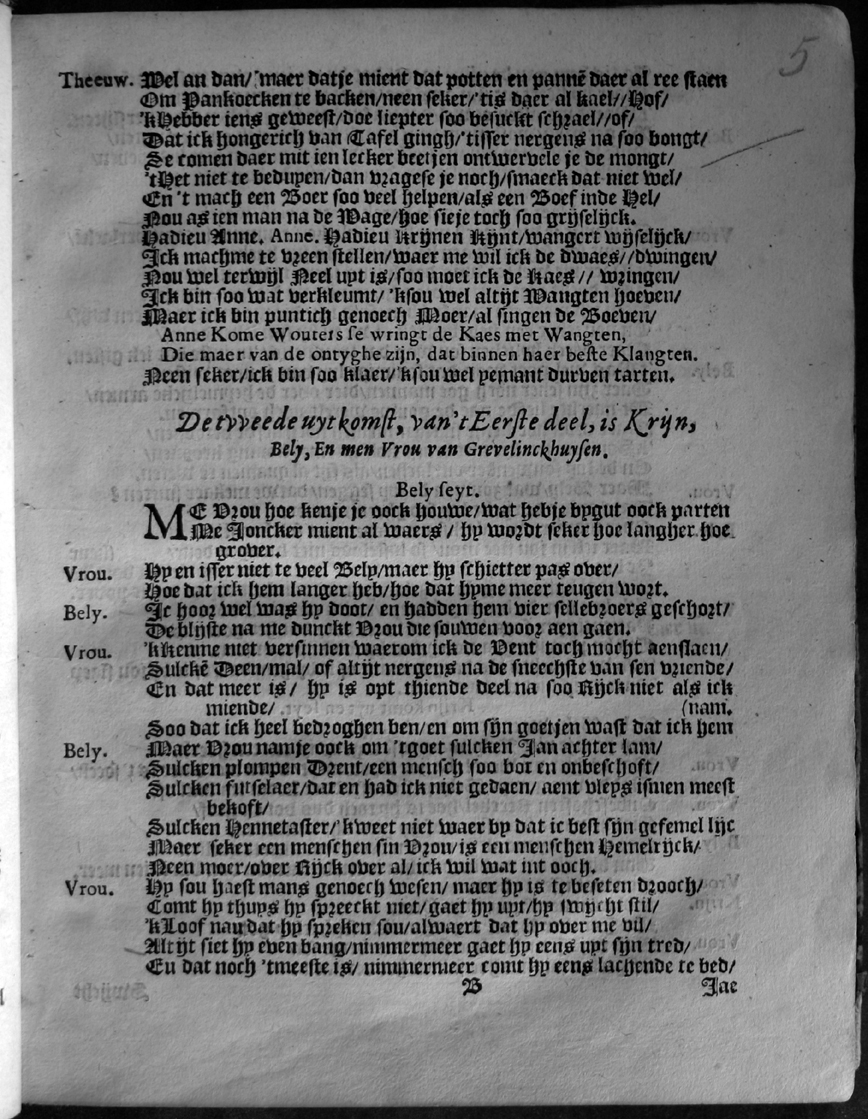 5
Theeuw. Wel an dan/ 'maer datje mient dat potten en pannē daer al ree staen
Om Pankoecken te backen/neen seker/'tis daer al kael//Hof/
'kHebber iens geweest/doe liepter soo besuckt schrael//of/
Dat ick hongerich van Tafel gingh/'tisser nergens na soo bongt/
Se comen daer mit ien lecker beetjen ontwervele je de mongt/
'tHet niet te beduyen/dan vragese je noch/smaeck dat niet wel/
En 't mach een Boer soo veel helpen/als een Boef inde Hel/
Nou as ien man na de Wage/hoe sieje toch soo grijselijck.
Hadieu Anne. Anne. Hadieu Krijnen Kijnt/wangert wijselijck/
Ick machme te vreen stellen/waer me wil ick de dwaes//dwingen/
Nou wel terwijl Neel uyt is/soo moet ick de Kaes// wringen/
Ick bin soo wat verkleumt/ 'ksou wel altijt Wangten hoeven/
Maer ick bin puntich genoech Moer/al singen de Boeven/
Anne Kome Wouters se wringt de Kaes met Wangten,
Die maer van de ontyghe zijn, dat binnen haer beste Klangten.
Neen seker/ick bin soo klaer/'ksou wel yemant durven tarten.
De tvveede uytkomst, van't Eerste deel, is Krijn,
Bely, En men Vrou van Grevelinckhuysen.
Bely seyt.
ME Vrou hoe kenje je oock houwe/wat hebje bygut oock parten
Me Joncker mient al waers / hy wordt seker hoe langher hoe
grover.
Vrou. Hy en isser niet te veel Bely/maer hy schietter pas over/
Hoe dat ick hem langer heb/hoe dat hyme meer teugen wort.
Bely. Je hoor wel was hy doot/ en hadden hem vier sellebroers geschort/
De blijste na me dunckt Vrou die souwen voor aen gaen.
Vrou. 'kKenme niet versinnen waerom ick de Vent toch mocht aenslaen/
Sulckē Deen/mal/ of altijt nergens na de sneechste van sen vriende/
En dat meer is/ hy is opt thiende deel na soo Rijck niet als ick
miende/ (nam.
Soo dat ick heel bedroghen ben/en om sijn goetjen wast dat ick hem
Bely. Maer Vrou namje oock om 'tgoet sulcken Jan achter lam/
Sulcken plompen Drent/een mensch soo bot en onbeschoft/
Sulcken futselaer/dat en had ick niet gedaen/ aent vleys ismen meest
bekoft/
Sulcken Hennetaster/'kweet niet waer by dat ic best sijn gefemel lijc
Maer seker een menschen sin Vrou/is een menschen Hemelrijck/
Neen moer/over Rijck over al/ick wil wat int ooch.
Vrou. Hy sou haest mans genoech wesen/ maer hy is te beseten drooch/
Comt hy thuys hy spreeckt niet/gaet hy uyt/hy swijcht stil/
'kLoof nau dat hy spreken sou/alwaert dat hy over me vil/
Altijt siet hy even bang/nimmermeer gaet hy eens uyt sijn tred/
Eu dat noch 'tmeeste is/ nimmermeer comt hy eens lachende te bed/
B Jae